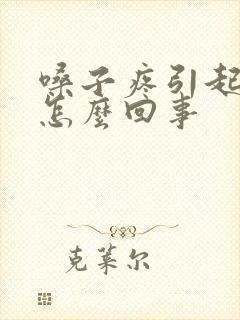 嗓子疼引起
怎麼回事
克萊尔